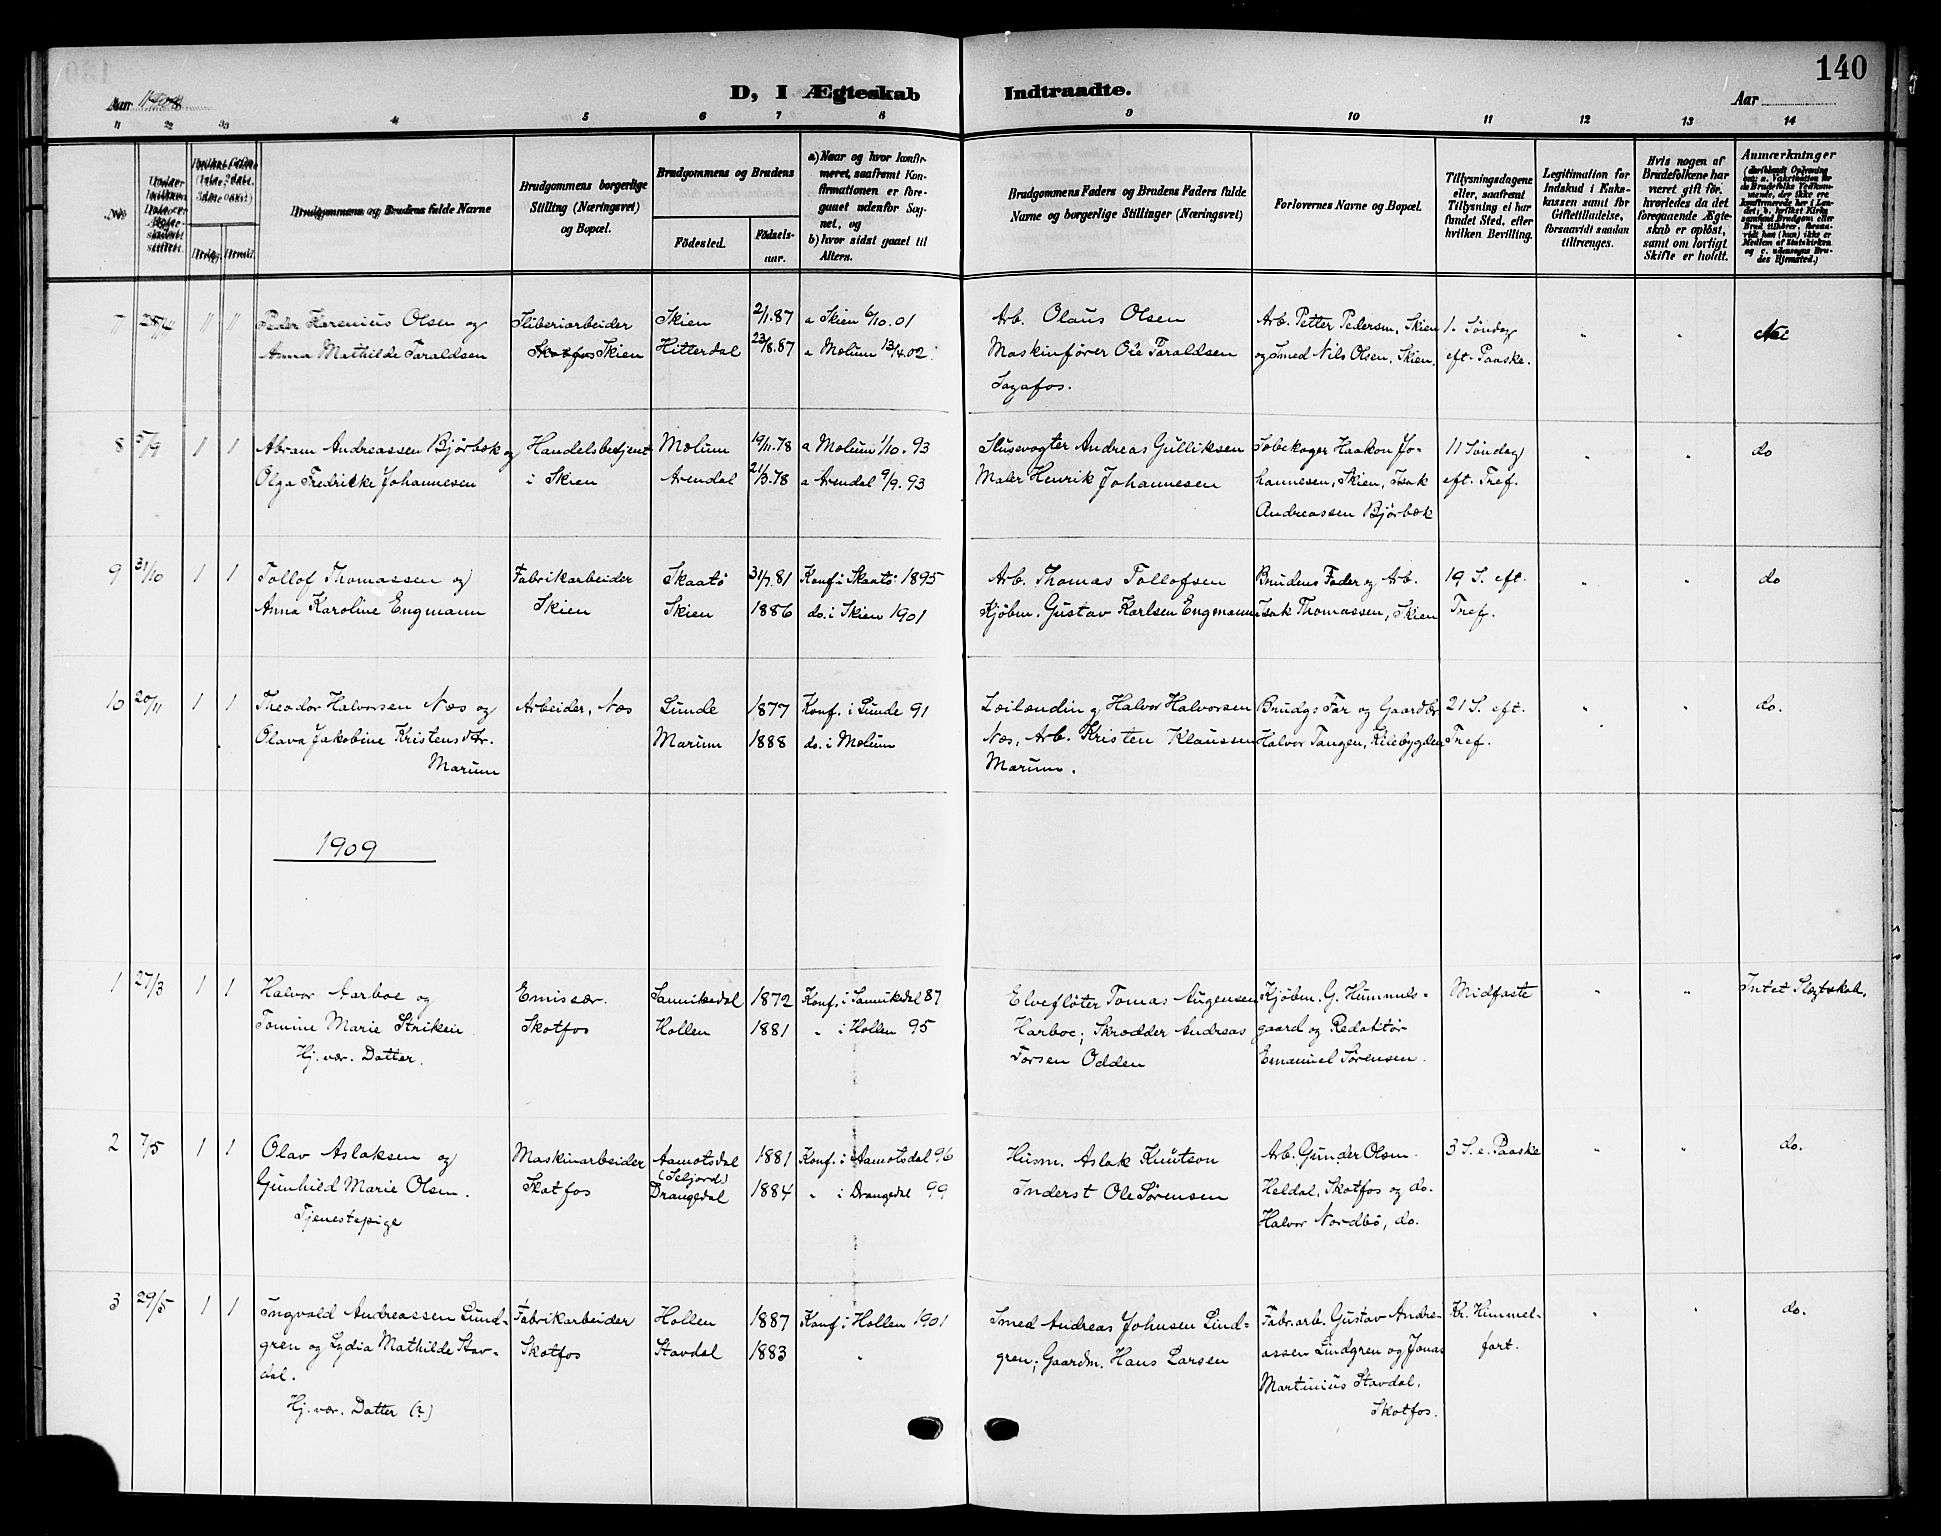 140
Aar 1908
D, I Ægteskab Indtraadte.
Aar
4 5 6 7 8 9 10 11 12 13 14
No
Brudgommens og Brudens fulde Navne
Brudgommens borgerlige
Stilling (Næringsvei)
og Bopæl.
Brudgommens og Brudens
Fødested.
Fødsels-
aar.
a) Naar og hvor konfir-
meret, saafremt Kon-
firmationen er fore-
gaaet udenfor Sog-
net, og
b) hvor sidst gaaet til
Alters.
Brudgommens Faders og Brudens Faders fulde
Navne og borgerlige Stillinger (Næringsvei)
Forlovernes Navne og Bopæl.
Tillysningsdagene
eller, saafremt
Tillysning ei har
fundet Sted, efter
hvilken Bevilling.
Legitimation for
Indskud i Enke-
kassen samt for
Giftetilladelse,
forsaavidt saadan
tiltrænges.
Hvis nogen af
Brudefolkene har
været gift før,
hvorledes da det
foregaaende Ægte-
skab er opløst,
samt om lovligt
Skifte er holdt.
Anmærkninger
7 1 1 Peder Karenius Olsen og Sliberiarbeider Skien 2/1.87 a Skien 6/10.01 Arb. Olaus Olsen Arb. Petter Pedersen, Skien 1. Søndag Nei
Anna Mathilde Taraldsen Skotfos Skien Hitterdal 23/8.87 a Melum 13/4.02. Maskinfører Ole Taraldsen og Smed Nils Olsen, Skien. eft. Paaske.
Sagafos.
8 5/9 1 1 Abram Andreassen Bjørbæk og Handelsbetjent Melum 19/11.78 a Melum 1/10.93 Slusevogter Andreas Gulliksen Sæbekoger Haakon Jo- 11 Søndag do
Olga Fredrikke Johannesen i Skien Arendal 21/3.78 a Arendal 9/9.93 Maler Henrik Johannesen hannesen, Skien, Isak eft. Tref.
Andreassen Bjørbæk
9 31/10 1 1 Tollof Thomassen og Fabrikarbeider Skaatø 31/7.81 Konf. i Skaatø 1895 Arb. Thomas Tollofsen Brudens Fader og Arb. 19 S. eft. do
Anna Karoline Engmann Skien Skien 1886 do. i Skien 1901 Kjøbm. Gustav Karlsen Engmann Isak Thomassen, Skien Tref.
10 20/11 1 1 Theodor Halvorsen Næs og Arbeider, Næs Lunde 1877 Konf. i Lunde 91 Leilænding Halvor Halvorsen Brudgs Far og Gaardbr. 21 S. eft. do.
Olava Jakobine Kristensdtr. Marum 1888 do. i Melum Næs, Arb. Kristen Klaussen Halvor Tangen, Kilebygden Tref.
Marum Marum.
1909
1 27/3 1 1 Halvor Aarboe og Emissær. Sannikedal 1872 Konf. i Sannikedal 87 Elvefløter Tomas Augensen Kjøbm. G. Himmels- Midfaste Intet Slægtskab.
Tomine Marie Striken Skotfos Hollen 1881 " i Hollen 95 Harboe; Skrædder Andreas gaard og Redaktør
Hj. vær. Datter. Torsen Odden Emanuel Sørensen.
2 7/5 1 1 Olav Aslaksen og Maskinarbeider Aamotsdal 1881 Konf. i Aamotsdal 96 Husm. Aslak Knutson Arb. Gunder Olsen. 3 S. e. Paaske do.
(Seljord)
Gunhild Marie Olsen. Skotfos Drangedal 1884 " i Drangedal 99 Inderst Ole Sørensen Heldal, Skotfos og do.
Tjenestepige Halvor Nordbø, do.
3 29/5 1 1 Ingvald Andreassen Lund- Fabrikarbeider Hollen 1887 Konf. i Hollen 1901 Smed Andreas Johnsen Lind- Fabr.arb. Gustav Andre- Kr. Himmel- do.
gren og Lydia Mathilde Stav- Skotfos Stavdal 1883 " gren; Gaardm. Hans Larsen assen Lindgren og Jonas fart.
dal. Martinius Stavdal,
Hj. vær. Datter (?) Skotfos.